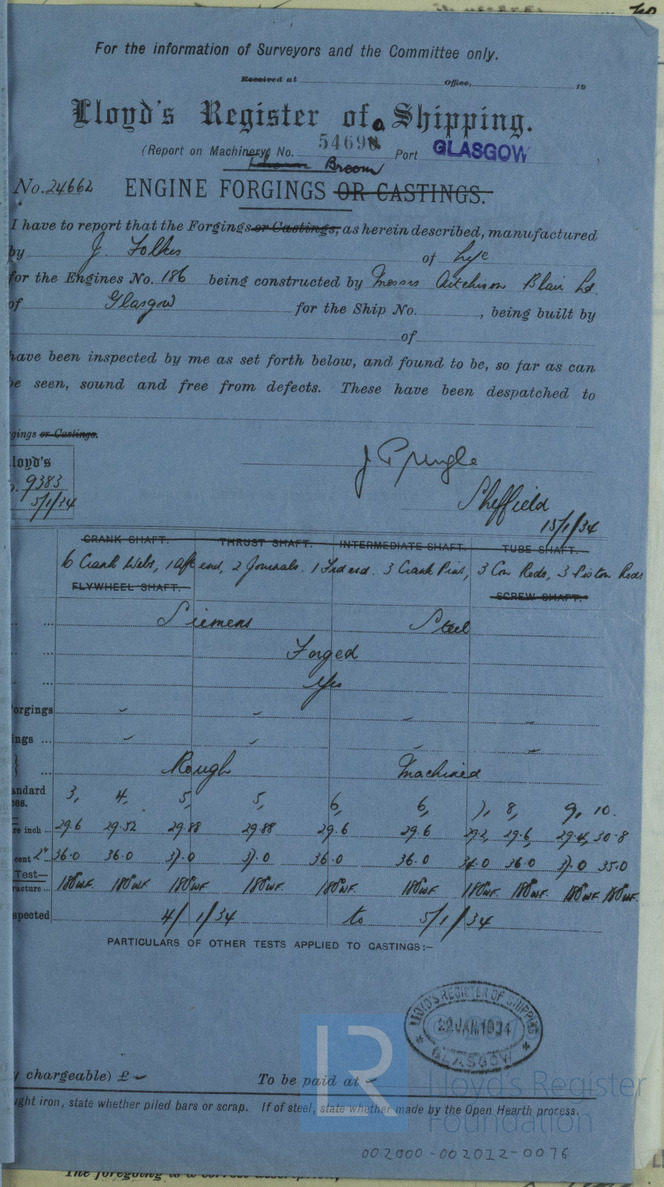 For the information of Surveyors and the Committee only.
Received at Office, 19
Lloyd's Register of Shipping.
(Report on Machinery No. 5469 Port GLASGOW
Broom
No. 24662 ENGINE FORGINGS OR CASTINGS.
I have to report that the Forgings or Castings, as herein described, manufactured
by J Folkes of Lye
for the Engines No. 186 being constructed by Messrs Aitchison Blair Ld.
of Glasgow for the Ship No. , being built by
of
have been inspected by me as set forth below, and found to be, so far as can
be seen, sound and free from defects. These have been despatched to
rgings or Castings.
loyd's
J Pringle
9383
5/1/34
Sheffield
15/1/34
CRANK SHAFT. THRUST SHAFT. INTERMEDIATE SHAFT. TUBE SHAFT.
6 Crank Webs, 1 Aft end, 2 Journals. 1 Frd end. 3 Crank Pins, 3 Con Rods, 3 Piston Rods
FLYWHEEL SHAFT. SCREW SHAFT.
Siemens Steel
Forged
Yes
orgings
ngs
Rough Machined
andard 3, 4, 5, 5, 6, 6, 7, 8, 9, 10.
ces.
re inch 29.6 29.52 29.88 29.88 29.6 29.6 29.2, 29.6, 29.4, 30.8
cent 2" 36.0 36.0 37.0 37.0 36.0 36.0 36.0 36.0 37.0 35.0
Test—
racture 180° W.F. 180° W.F. 180° W.F. 180° W.F. 180° W.F. 180° W.F. 180° W.F. 180° W.F. 180° W.F. 180° W.F.
spected 4/1/34 to 5/1/34
PARTICULARS OF OTHER TESTS APPLIED TO CASTINGS:—
LLOYD'S REGISTER OF SHIPPING
22 JAN 1934
GLASGOW
y chargeable) £ To be paid at
ught iron, state whether piled bars or scrap. If of steel, state whether made by the Open Hearth process.
LR
Lloyd's Register
Foundation
002000-002012-0076
The foregoing is a correct description,